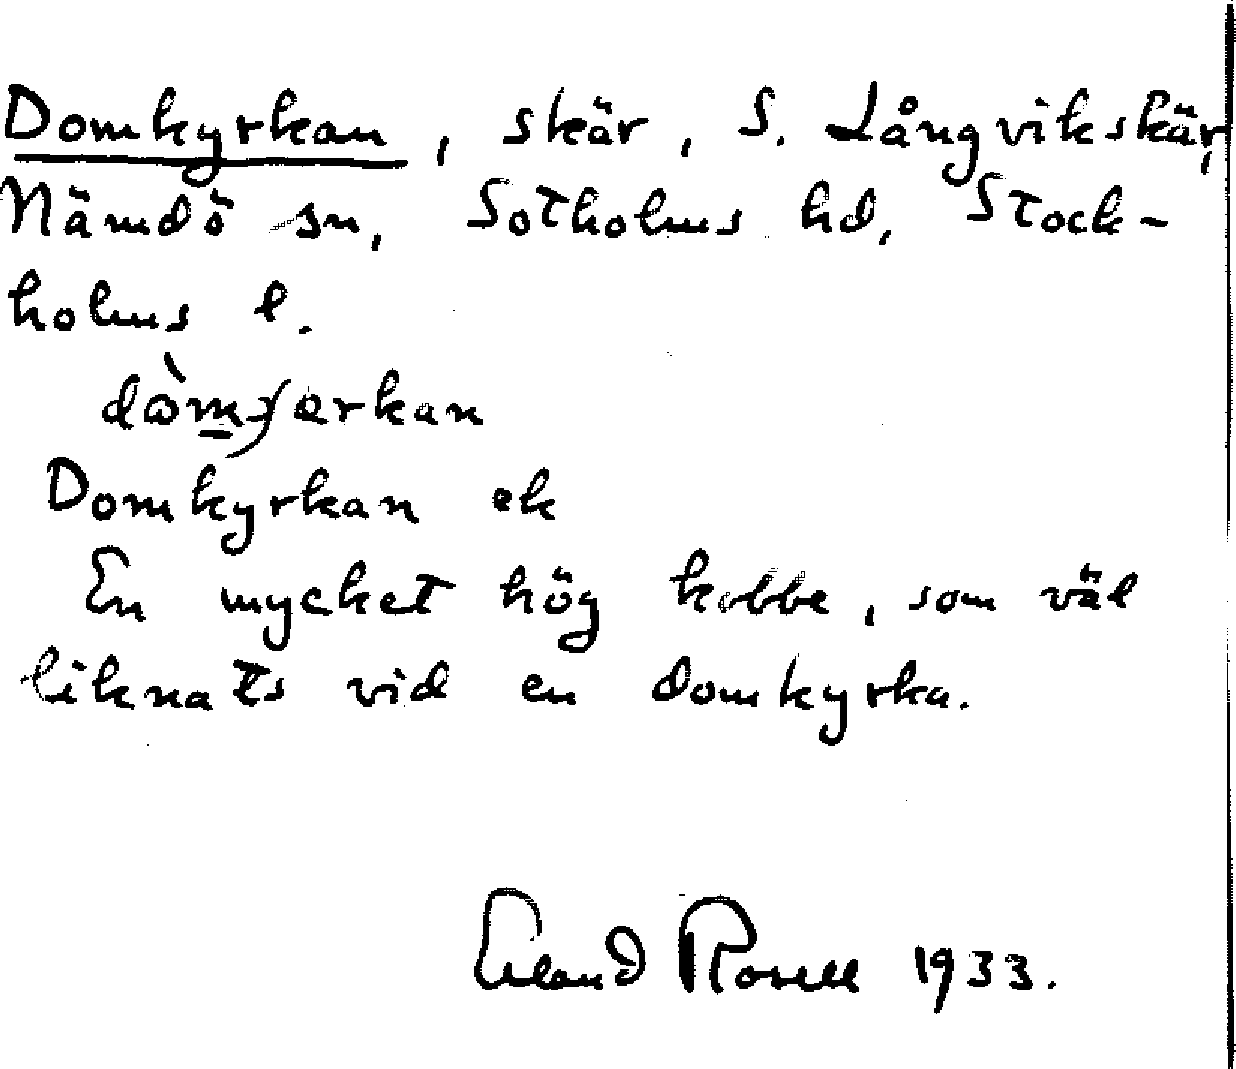 Domkyrkan, skär, S. Långvikskär,
Nämdö sn, Sotholms hd, Stock-
holms l.
Domkyrkan ek
En mycket hög kobbe, som väl
liknats vid en domkyrka.
Erland Rosell 1933.